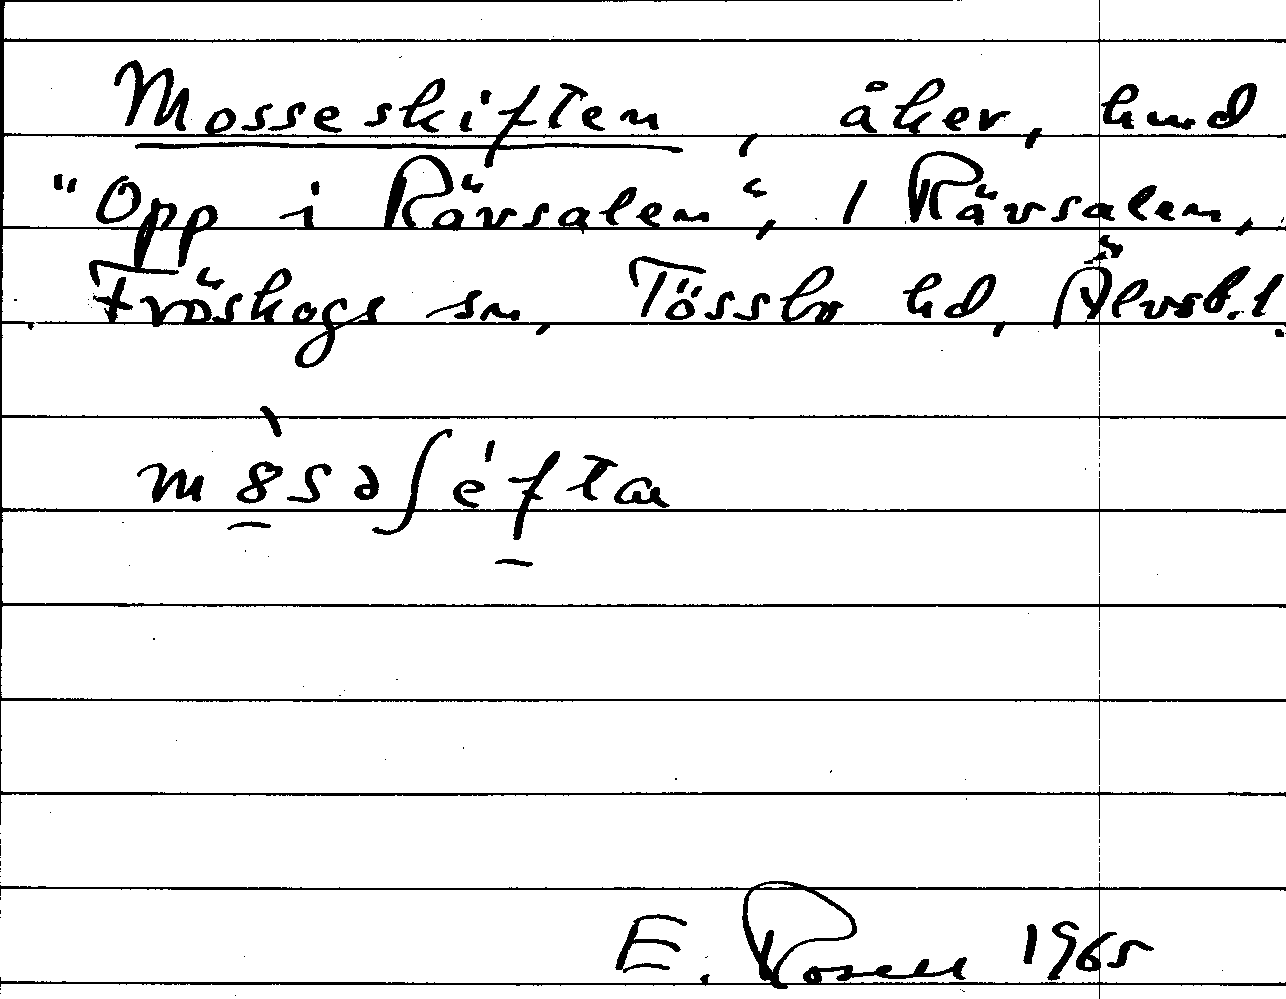 Mosseskiften, åker, hmd
"Opp i Rävsalen", 1 Rävsalen,
Fröskogs sn, Tössbo hd, Älvsb.l.
m8sə∫éfta
E. Rosell 1965